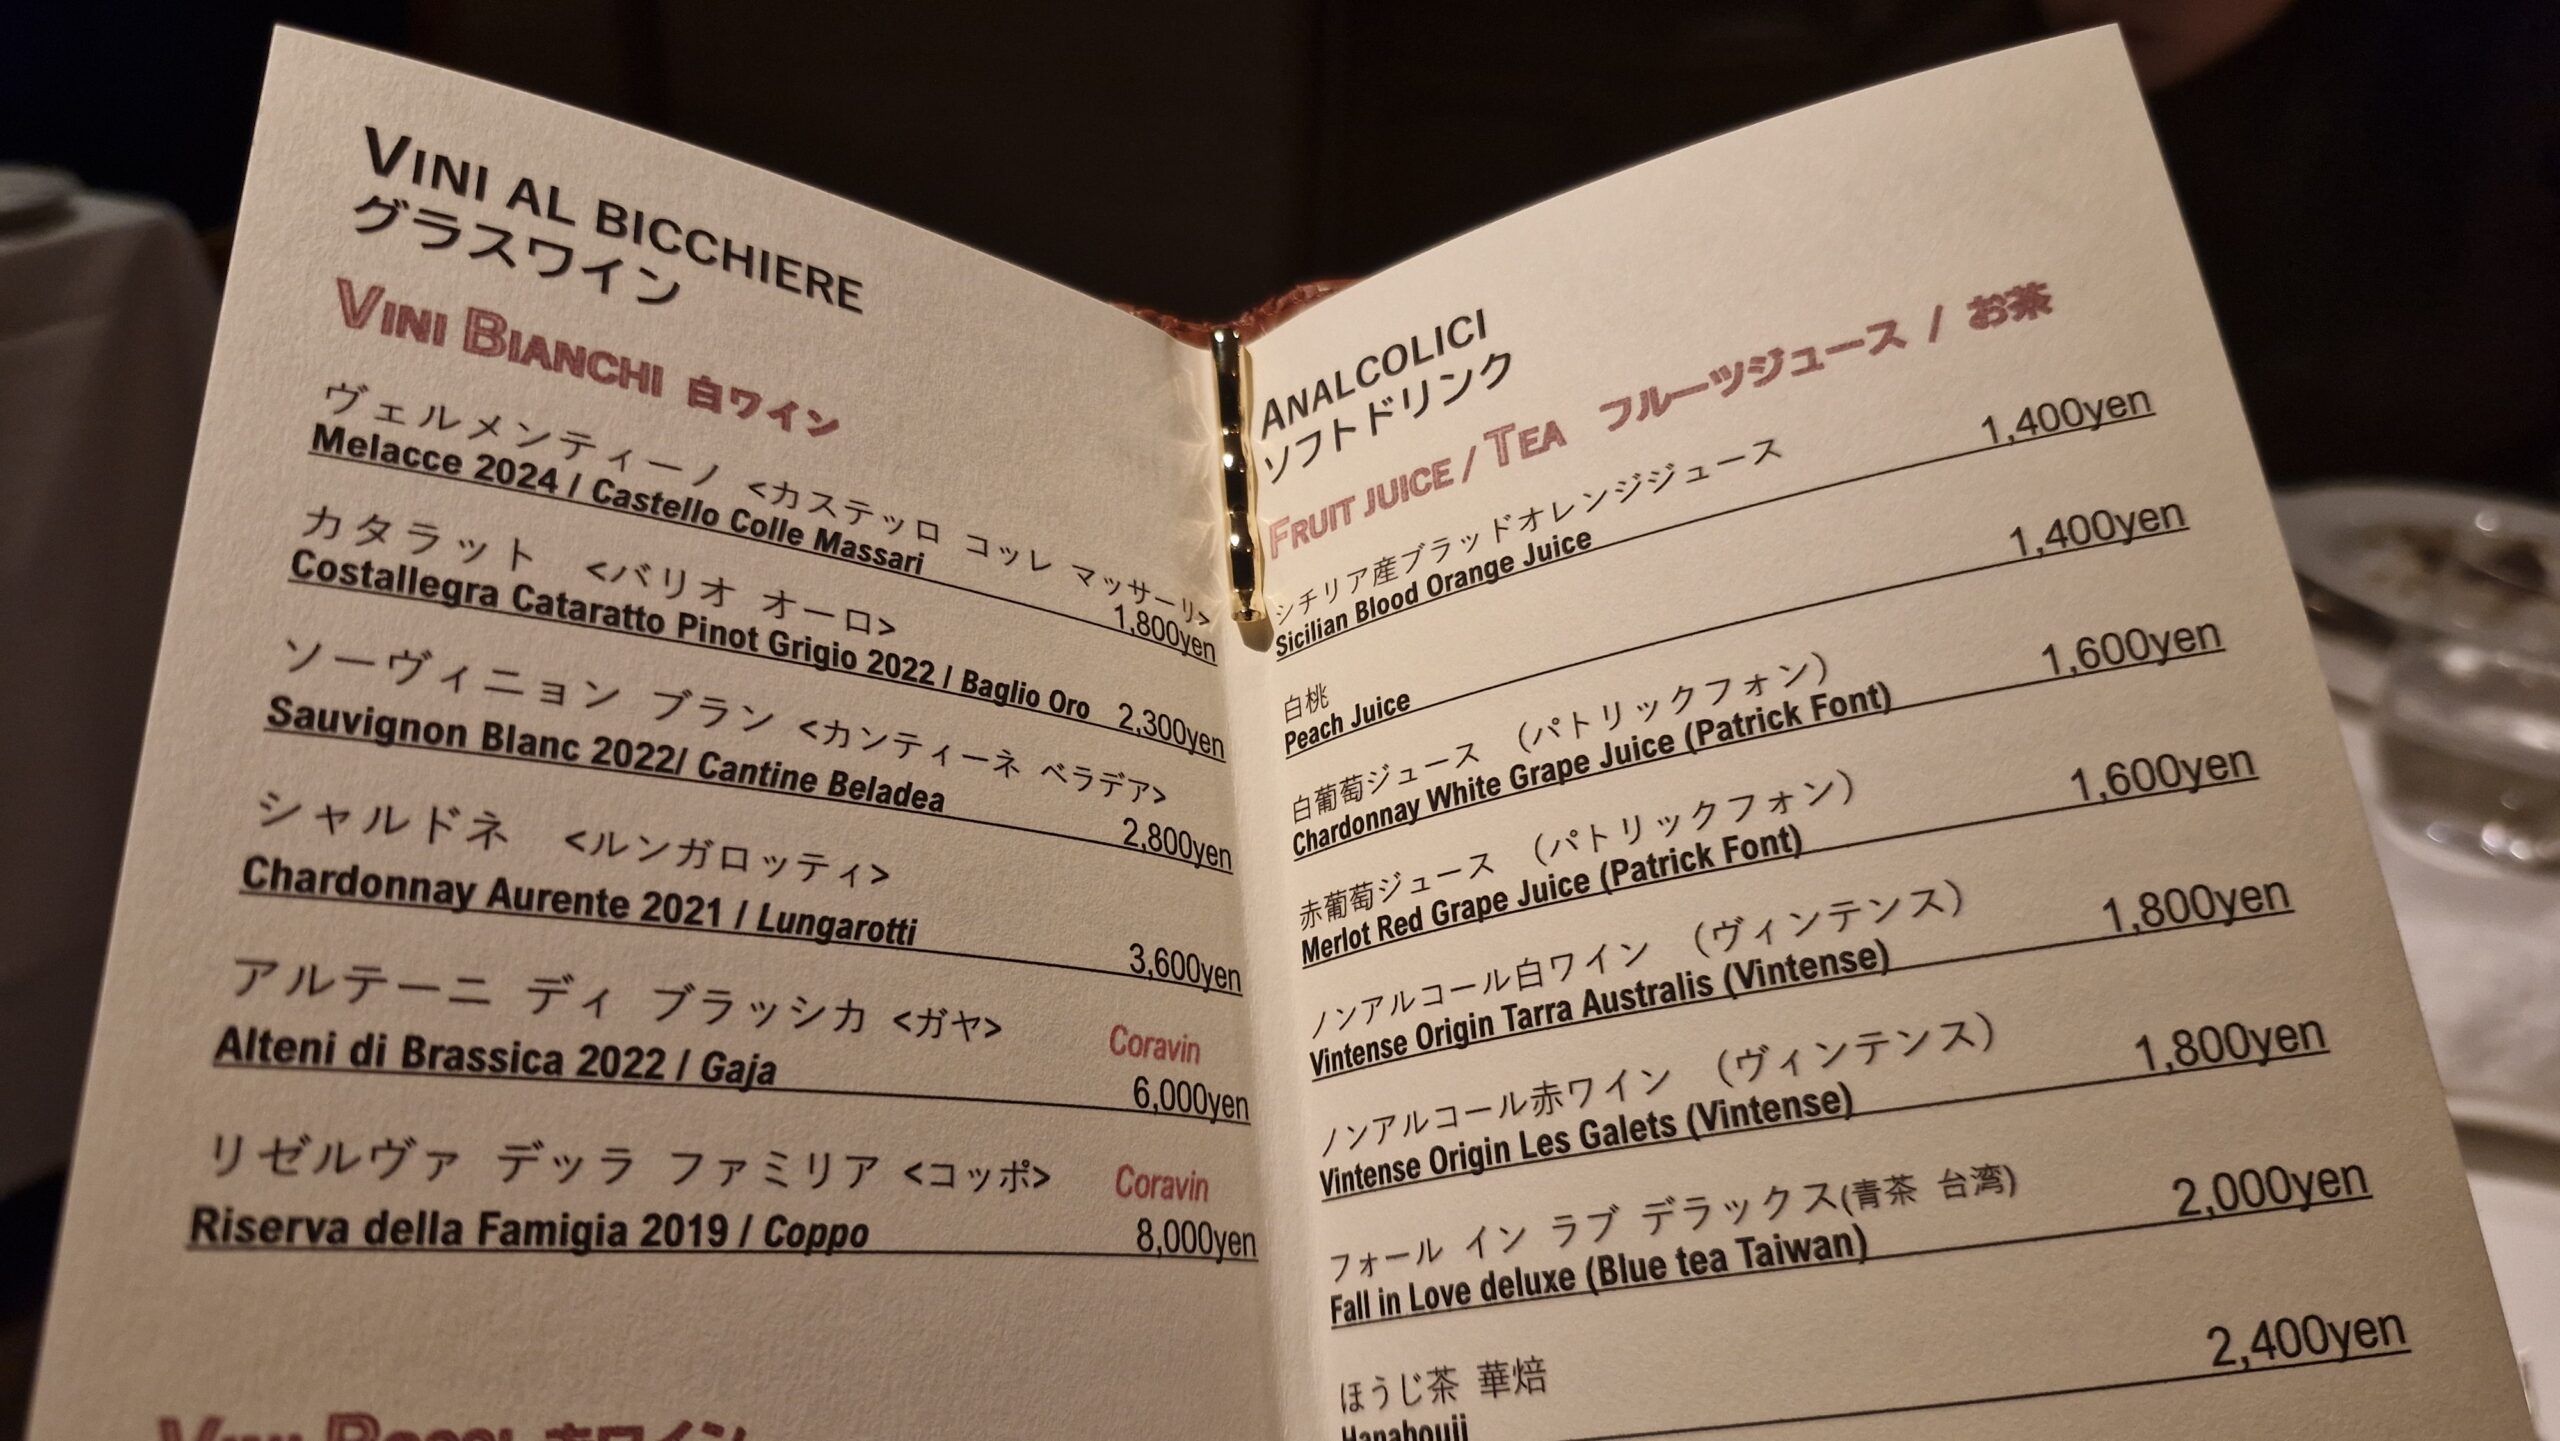 VINI AL BICCHIERE
グラスワイン
VINI BIANCHI 白ワイン
ヴェルメンティーノ <カステッロ コッレ マッサーリ>
Melacce 2024 / Castello Colle Massari 1,800yen
カタラット <バリオ オーロ>
Costallegra Cataratto Pinot Grigio 2022 / Baglio Oro 2,300yen
ソーヴィニョン ブラン <カンティーネ ベラデア>
Sauvignon Blanc 2022/ Cantine Beladea 2,800yen
シャルドネ <ルンガロッティ>
Chardonnay Aurente 2021 / Lungarotti 3,600yen
アルテーニ ディ ブラッシカ <ガヤ> Coravin
Alteni di Brassica 2022 / Gaja 6,000yen
リゼルヴァ デッラ ファミリア <コッポ> Coravin
Riserva della Famigia 2019 / Coppo 8,000yen
ANALCOLICI
ソフトドリンク
FRUIT JUICE / TEA フルーツジュース / お茶
シチリア産ブラッドオレンジジュース
Sicilian Blood Orange Juice 1,400yen
白桃
Peach Juice 1,400yen
白葡萄ジュース (パトリックフォン)
Chardonnay White Grape Juice (Patrick Font) 1,600yen
赤葡萄ジュース (パトリックフォン)
Merlot Red Grape Juice (Patrick Font) 1,600yen
ノンアルコール白ワイン (ヴィンテンス)
Vintense Origin Tarra Australis (Vintense) 1,800yen
ノンアルコール赤ワイン (ヴィンテンス)
Vintense Origin Les Galets (Vintense) 1,800yen
フォール イン ラブ デラックス(青茶 台湾)
Fall in Love deluxe (Blue tea Taiwan) 2,000yen
ほうじ茶 華焙
Hanahouji 2,400yen